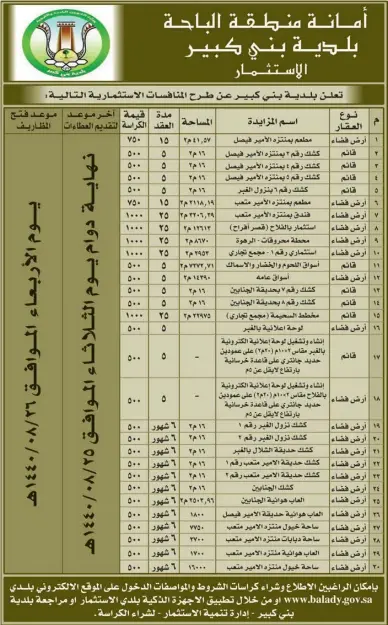 أمانة منطقة الباحة
بلدية بني كبير
الإستثمار
تعلن بلدية بني كبير عن طرح المنافسات الاستثمارية التالية:
م نوع العقار اسم المزايدة المساحة مدة العقد قيمة الكراسة آخر موعد لتقديم العطاءات موعد فتح المظاريف
نهاية دوام يوم الثلاثاء الموافق ١٤٤٠/٠٨/٢٥هـ
يوم الأربعاء الموافق ١٤٤٠/٠٨/٢٦هـ
١ أرض فضاء مطعم بمنتزه الأمير فيصل ٤١,٥٧م٢ ١٥ ٧٥٠
٢ قائم كشك رقم ٢ بمنتزه الأمير فيصل ١٦م٢ ٥ ٥٠٠
٣ قائم كشك رقم ٤ بمنتزه الأمير فيصل ١٦م٢ ٥ ٥٠٠
٤ قائم كشك رقم ٥ بمنتزه الأمير فيصل ١٦م٢ ٥ ٥٠٠
٥ قائم كشك رقم ٦ بنزول الغبر ١٦م٢ ٥ ٥٠٠
٦ أرض فضاء مطعم بمنتزه الأمير متعب ٢١١٨,١٩م٢ ١٥ ٧٥٠
٧ أرض فضاء فندق بمنتزه الأمير متعب ٢٣٠٦,٢٩م٢ ٢٥ ١٠٠٠
٨ أرض فضاء استثمار بالفلاح (قصر أفراح) ١٢٦١٣م٢ ٢٥ ١٠٠٠
٩ أرض فضاء محطة محروقات - الرهوة ٨٦٧٠م٢ ٢٥ ١٠٠٠
١٠ أرض فضاء استثماري رقم ١ - مجمع تجاري ٢٩٥٢م٢ ٢٥ ١٠٠٠
١١ قائم أسواق اللحوم والخضار والأسماك ٧٣٧٢,٧١م٢ ٥ ٥٠٠
١٢ أرض فضاء أسواق عامه ١٤٣٩٠م٢ ٥ ٥٠٠
١٣ قائم كشك رقم ٧ بحديقة الجنابين ١٦م٢ ٥ ٥٠٠
١٤ قائم كشك رقم ٨ بحديقة الجنابين ١٦م٢ ٥ ٥٠٠
١٥ قائم مخطط السحيمة (مجمع تجاري) ٢٢٩٧٥م٢ ٢٥ ١٠٠٠
١٦ أرض فضاء لوحة اعلانية بالغبر ٥ ٥٠٠
١٧ قائم إنشاء وتشغيل لوحة إعلانية الكترونية
بالغبر مقاس ٢×١٠م (٢٠م٢) على عمودين
حديد جانتري على قاعدة خرسانية
بارتفاع لايقل عن ٥م - ٥ ٥٠٠
١٨ أرض فضاء إنشاء وتشغيل لوحة إعلانية الكترونية
بالفلاح مقاس ٢×١٠م (٢٠م٢) على عمودين
حديد جانتري على قاعدة خرسانية
بارتفاع لايقل عن ٥م - ٥ ٥٠٠
١٩ أرض فضاء كشك نزول الغبر رقم ١ ١٦م٢ ٦ شهور ٥٠٠
٢٠ أرض فضاء كشك نزول الغبر رقم ٢ ١٦م٢ ٦ شهور ٥٠٠
٢١ أرض فضاء كشك حديقة الشلال بالغبر ١٦م٢ ٦ شهور ٥٠٠
٢٢ أرض فضاء كشك حديقة الأمير متعب رقم ١ ١٦م٢ ٦ شهور ٥٠٠
٢٣ أرض فضاء كشك حديقة الأمير متعب رقم ٢ ١٦م٢ ٦ شهور ٥٠٠
٢٤ أرض فضاء كشك الجنابين ١٦م٢ ٦ شهور ٥٠٠
٢٥ أرض فضاء العاب هوائية الجنابين ٢٥٠٣,٩٦م٢ ٦ شهور ٥٠٠
٢٦ أرض فضاء العاب هوائية حديقة الأمير فيصل ١٨٠٠ ٦ شهور ٥٠٠
٢٧ أرض فضاء ساحة خيول منتزه الأمير متعب ٧٧٥٠ ٦ شهور ٥٠٠
٢٨ أرض فضاء ساحة دبابات منتزه الأمير متعب ٣٧٠٠ ٦ شهور ٥٠٠
٢٩ أرض فضاء العاب هوائية منتزه الأمير متعب ١٧٠٠ ٦ شهور ٥٠٠
٣٠ أرض فضاء ساحة خيول منتزه الأمير متعب ١٦٠٠٠ ٦ شهور ٥٠٠
بإمكان الراغبين الاطلاع وشراء كراسات الشروط والمواصفات الدخول على الموقع الالكتروني بلدي
www.balady.gov.sa او من خلال تطبيق الاجهزة الذكية بلدي الاستثمار او مراجعة بلدية
بني كبير - إدارة تنمية الاستثمار - لشراء الكراسة.